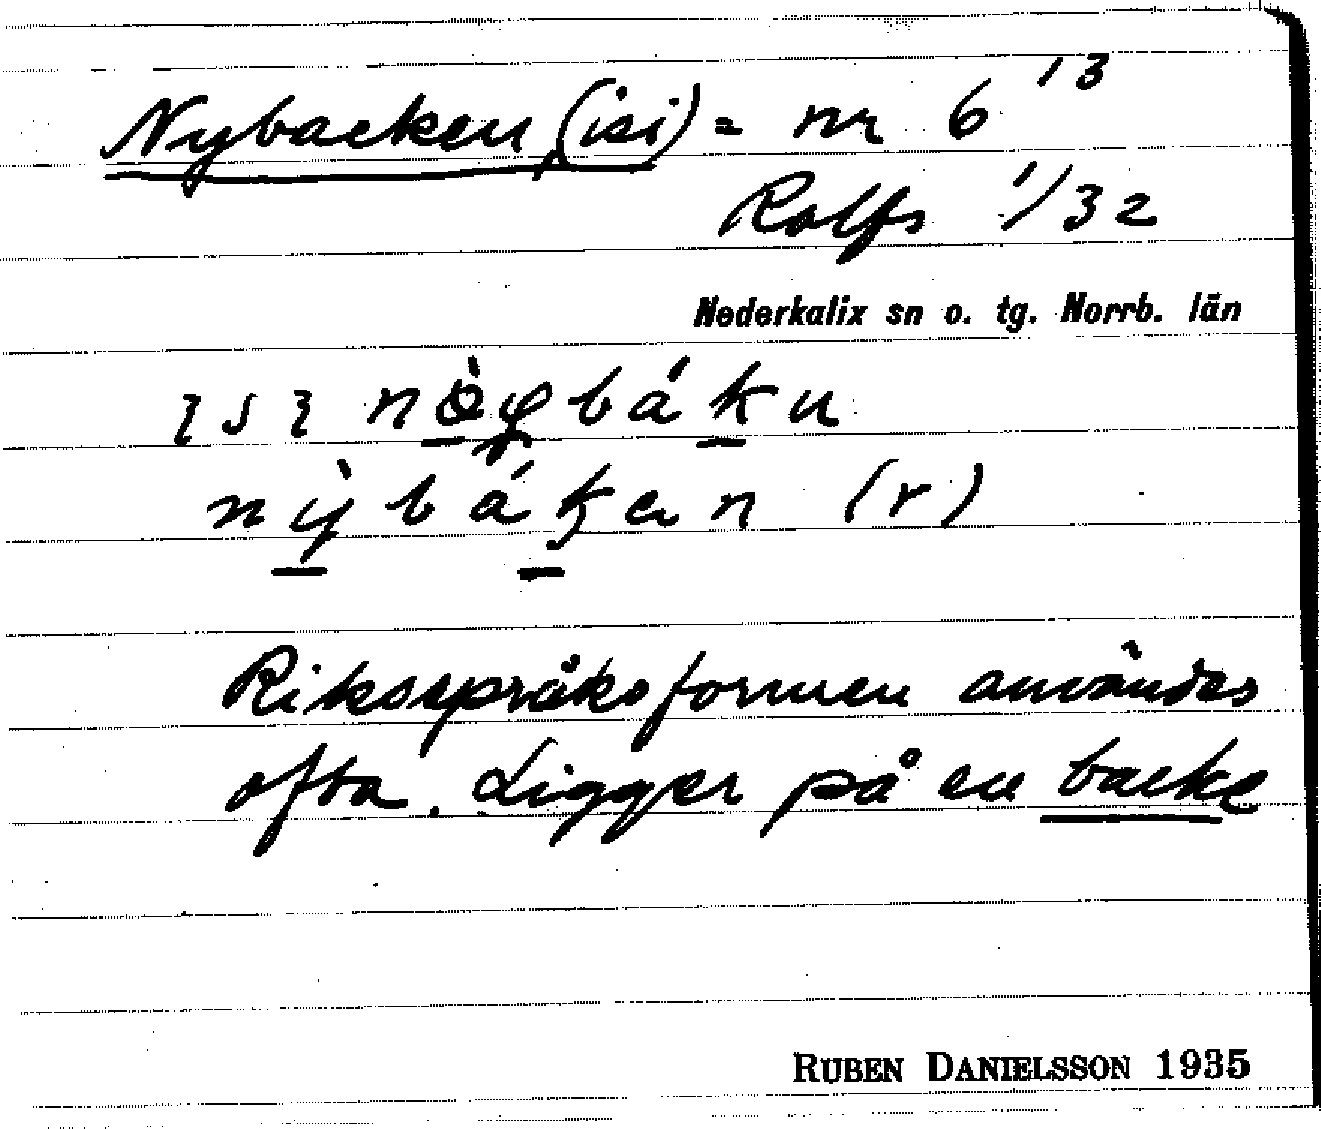 Nybacken, (isi) = nr 6 13
Rolfs 1/32
Nederkalix sn o. tg. Norrb. län
nỳbákan (r)
Riksspråksformen användes
ofta. Ligger på en backe
RUBEN DANIELSSON 1935